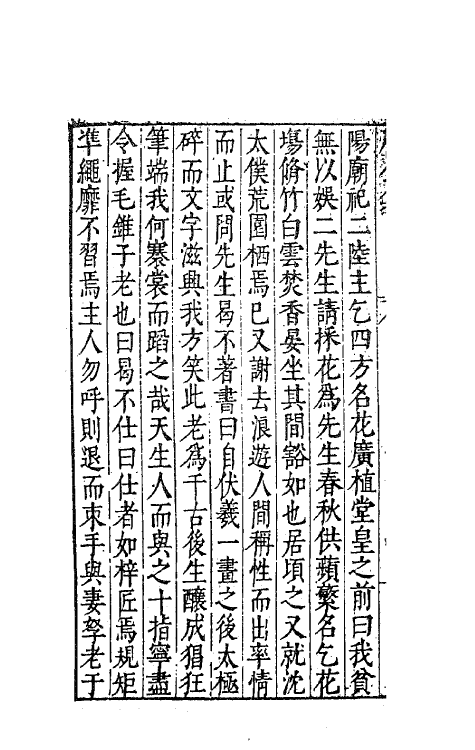 陽廟祀二陸主乞四方名花廣植堂皇之前曰我貧
無以娛二先生請採花爲先生春秋供蘋蘩名乞花
塲脩竹白雲焚香晏坐其間豁如也居頃之又就沈
太僕荒園栖焉已又謝去浪遊人間稱性而出率情
而止或問先生曷不著書曰自伏羲一畫之後太極
碎而文字滋興我方笑此老爲千古後生釀成猖狂
筆端我何褰裳而蹈之哉天生人而與之十指寧盡
令握毛錐子老也曰曷不仕曰仕者如梓匠焉規矩
準繩靡不習焉主人勿呼則退而束手與妻孥老于